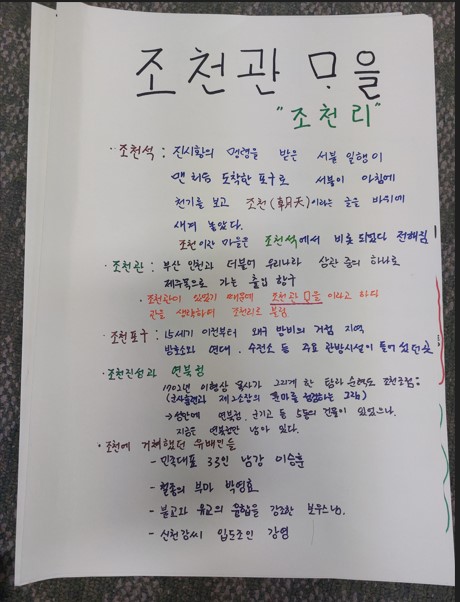 조천관 ᄆᆞ을
"조천리"
· 조천석 : 진시황의 명령을 받은 서불 일행이
맨 처음 도착한 포구로 서불이 아침에
천기를 보고 조천(朝天)이라는 글을 바위에
새겨 놓았다.
조천이란 마을은 조천석에서 비롯되었다 전해짐
· 조천관 : 부산 인천과 더불어 우리나라 삼관 중의 하나로
제주목으로 가는 출입 항구
· 조천관이 있었기 때문에 조천관 ᄆᆞ을 이라고 하다
관을 생략하여 조천리로 불림
· 조천 포구 : 15세기 이전부터 왜구 방비의 거점 지역
방호소와 연대, 수전소 등 주요 관방시설이 들어 섰던 곳
· 조천진성과 연북정
1702년 이형상 목사가 그리게 한 탐라 순력도 조천조점 :
(군사훈련과 제2소장의 둔마를 점검하는 그림)
→ 성안에 연북정, 군기고 등 5동의 건물이 있었으나.
지금은 연북정만 남아 있다.
· 조천에 거쳐했던 유배인들
- 민족대표 33인 남강 이승훈
- 철종의 부마 박영효
- 불교와 유교의 융합을 강조한 보우스님.
- 신천강씨 입도조인 강영